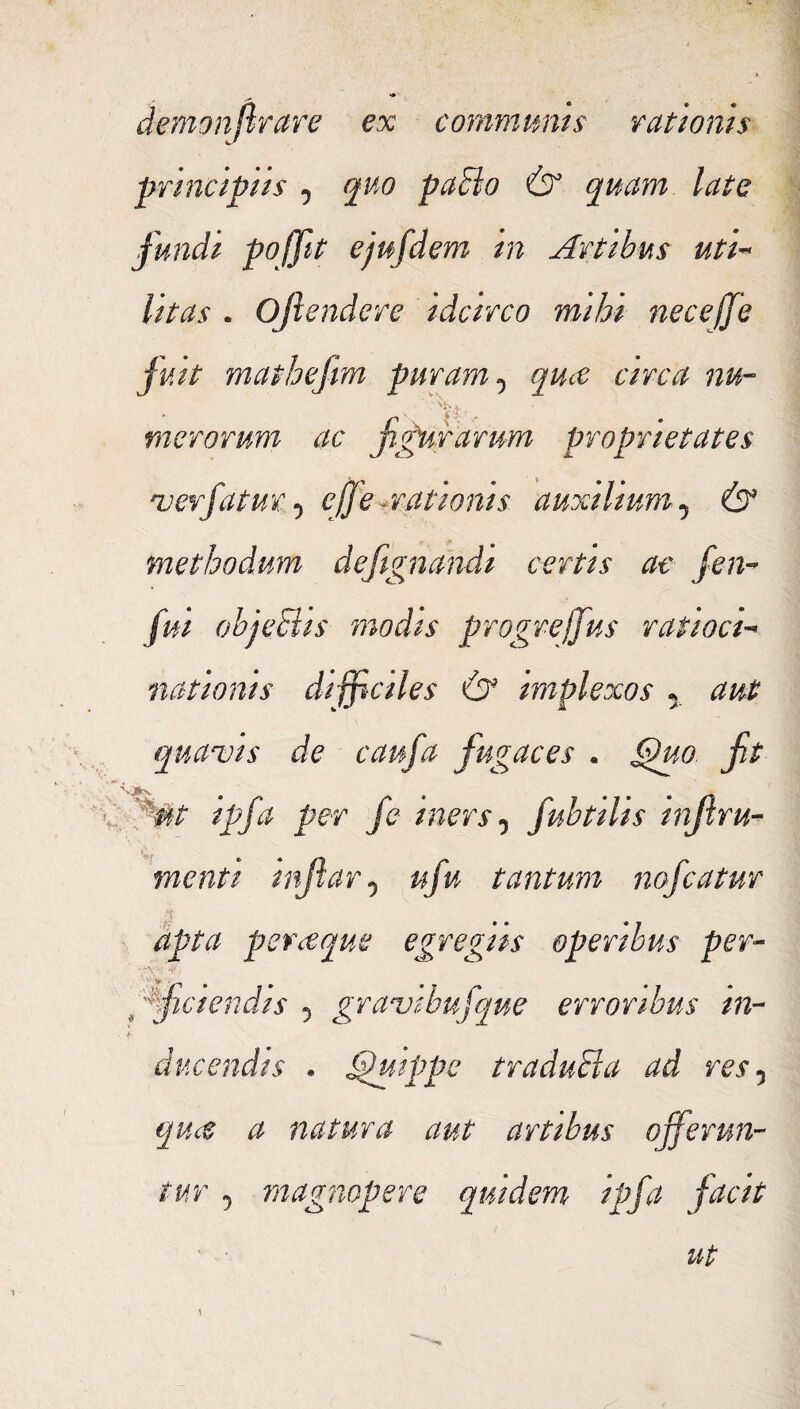 demonſtrare ex communis rationis
principiis , quo pacto & quam late
fundi poſſit ejuſdem in Artibus uti-
litas . Oſtendere idcirco mihi neceſſe
fuit matheſim puram, quæ circa nu-
merorum ac figurarum proprietates
verſatur, eſſe rationis auxilium, &
methodum deſignandi certis ac ſen-
ſui objectis modis progreſſus ratioci-
nationis difficiles & implexos , aut
quavis de cauſa fugaces . Quo fit
ut ipſa per ſe iners, ſubtilis inſtru-
menti inſtar, uſu tantum noſcatur
apta peræque egregiis operibus per-
ficiendis , gravibuſque erroribus in-
ducendis . Quippe traducta ad res,
quæ a natura aut artibus offerun-
tur , magnopere quidem ipſa facit
ut